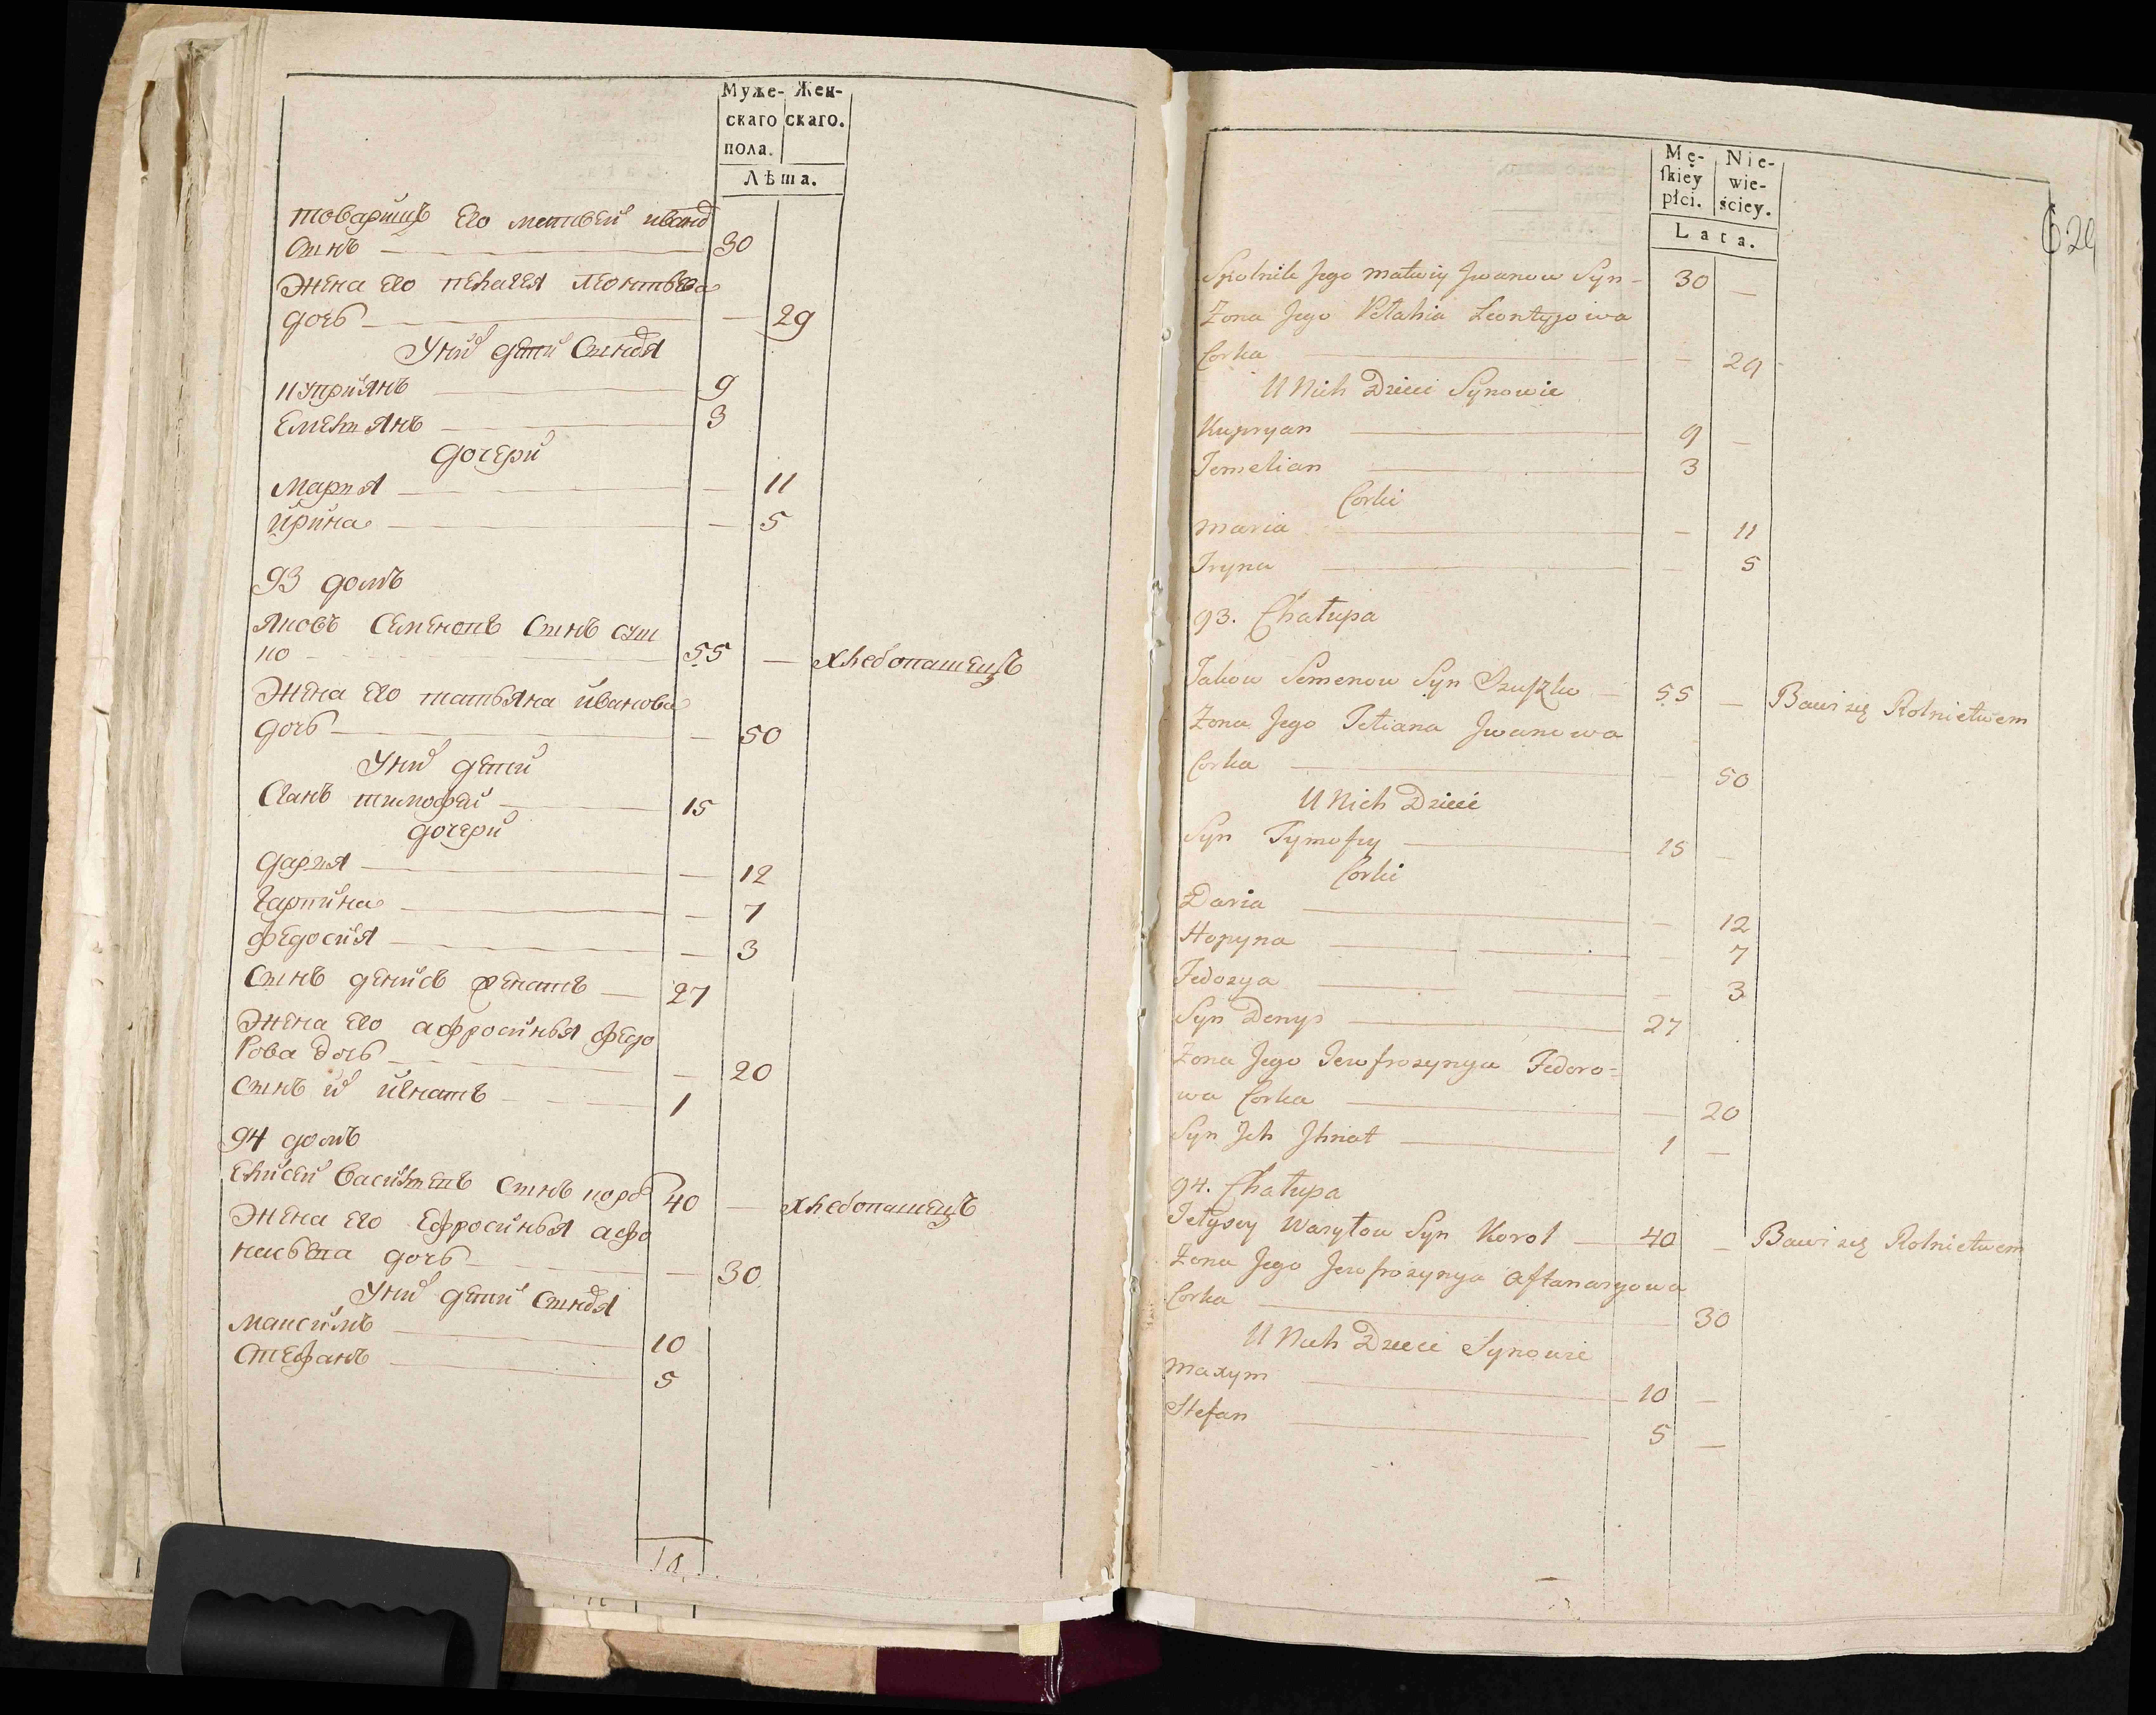 Муже- Жен-
скаго скаго.
пола.
Лѣта.
товарищъ Его матвей иванов
сынъ 30
Жена Его пелагея леонтьева
дочь — 29
Уних дети сыновя
куприянъ 9
Емельянъ 3
дочери
Мария — 11
ирина — 5
93 домъ
яковъ Семеновъ Сынъ суш
ко 55 — хлебопашецъ
Жена Его татьяна иванова
дочь — 50
Уних дети
Сынъ тимофей 15
дочери
дария — 12
гарпина — 7
федосия — 3
Сынъ денисъ женатъ 27
Жена Его афросинья федо
рова дочь — 20
сынъ их игнатъ 1
94 домъ
Елисей васильевъ сынъ король 40 — хлебопашецъ
Жена Его Ефросинья афо
насьева дочь — 30
Уних дети сыновя
Максимъ 10
Стефанъ 5
Mę- Nie-
ſkiey wie-
płci. ściey.
Lata.
629
Spolnik Jego Matwiy Jwanow Syn - 30 —
Żona Jego Pełahia Leontyjowa
Corka — 29
U Nich Dzieci Synowie
Kupryan 9 —
Jemelian 3
Corki
Maria — 11
Iryna — 5
93. Chałupa
Jakow Semenow Syn Szuszko 55 — Bawi się Rolnictwem
Żona Jego Tetiana Jwanowa
Corka — 50
U Nich Dzieci
Syn Tymofiy 15 —
Corki
Daria — 12
Horpyna — 7
Fedosya — 3
Syn Denys 27
Żona Jego Jewfrosynya Fedoro=
wa Corka — 20
Syn Ich Ihnat 1 —
94. Chałupa
Jełysey Wasylow Syn Korol 40 — Bawi się Rolnictwem
Żona Jego Jewfrosynya Aftanasyowa
Corka — 30
U Nich Dzieci Synowie
Maxym 10 —
Stefan 5 —